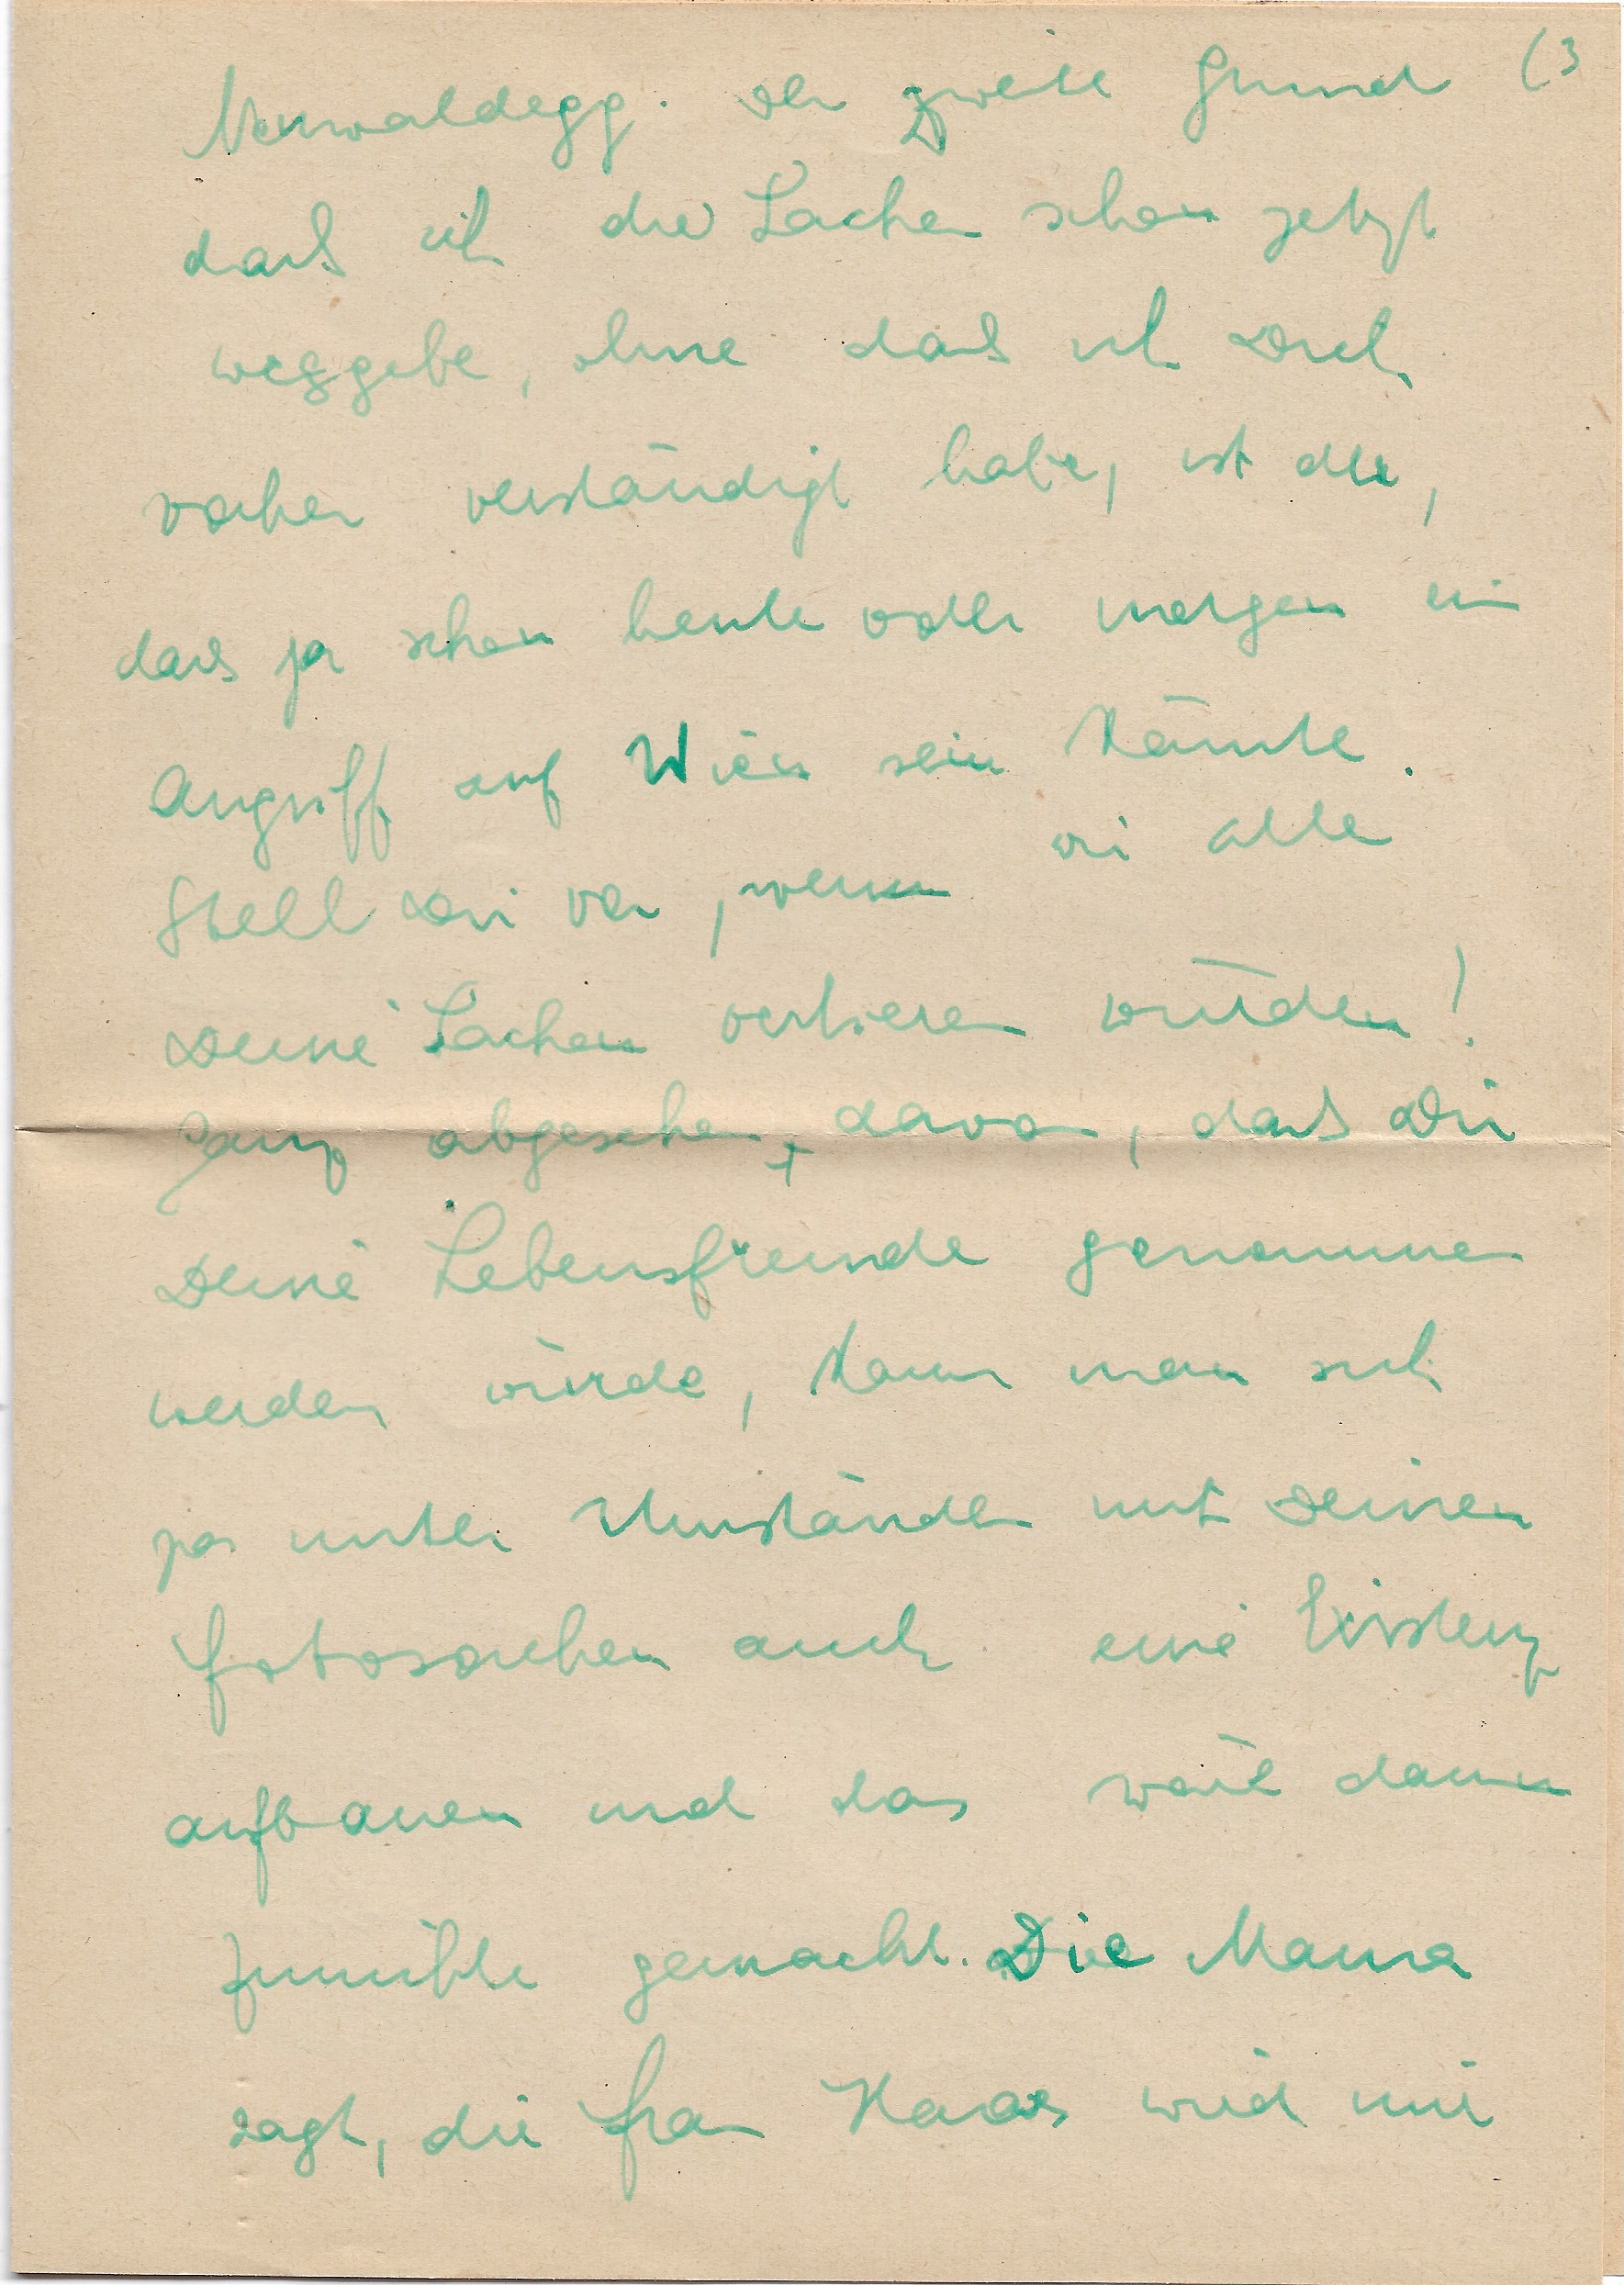 (3
Neuwaldegg. Der zweite Grund
daß ich die Sachen schon jetzt
weggebe, ohne daß ich Dich
vorher verständigt habe, ist der,
daß ja schon heute oder morgen ein
Angriff auf Wien sein könnte.
Stell Dir vor, wenn wir alle
Deine Sachen verlieren würden!
Ganz abgesehen davon, daß Dir
Deine Lebensfreude genommen
werden würde, kann man sich
ja unter Umständen mit Deinen
Fotosachen auch eine Existenz
aufbauen und das wäre dann
zunichte gemacht. Die Mama
sagt, die Frau Haas wird mir